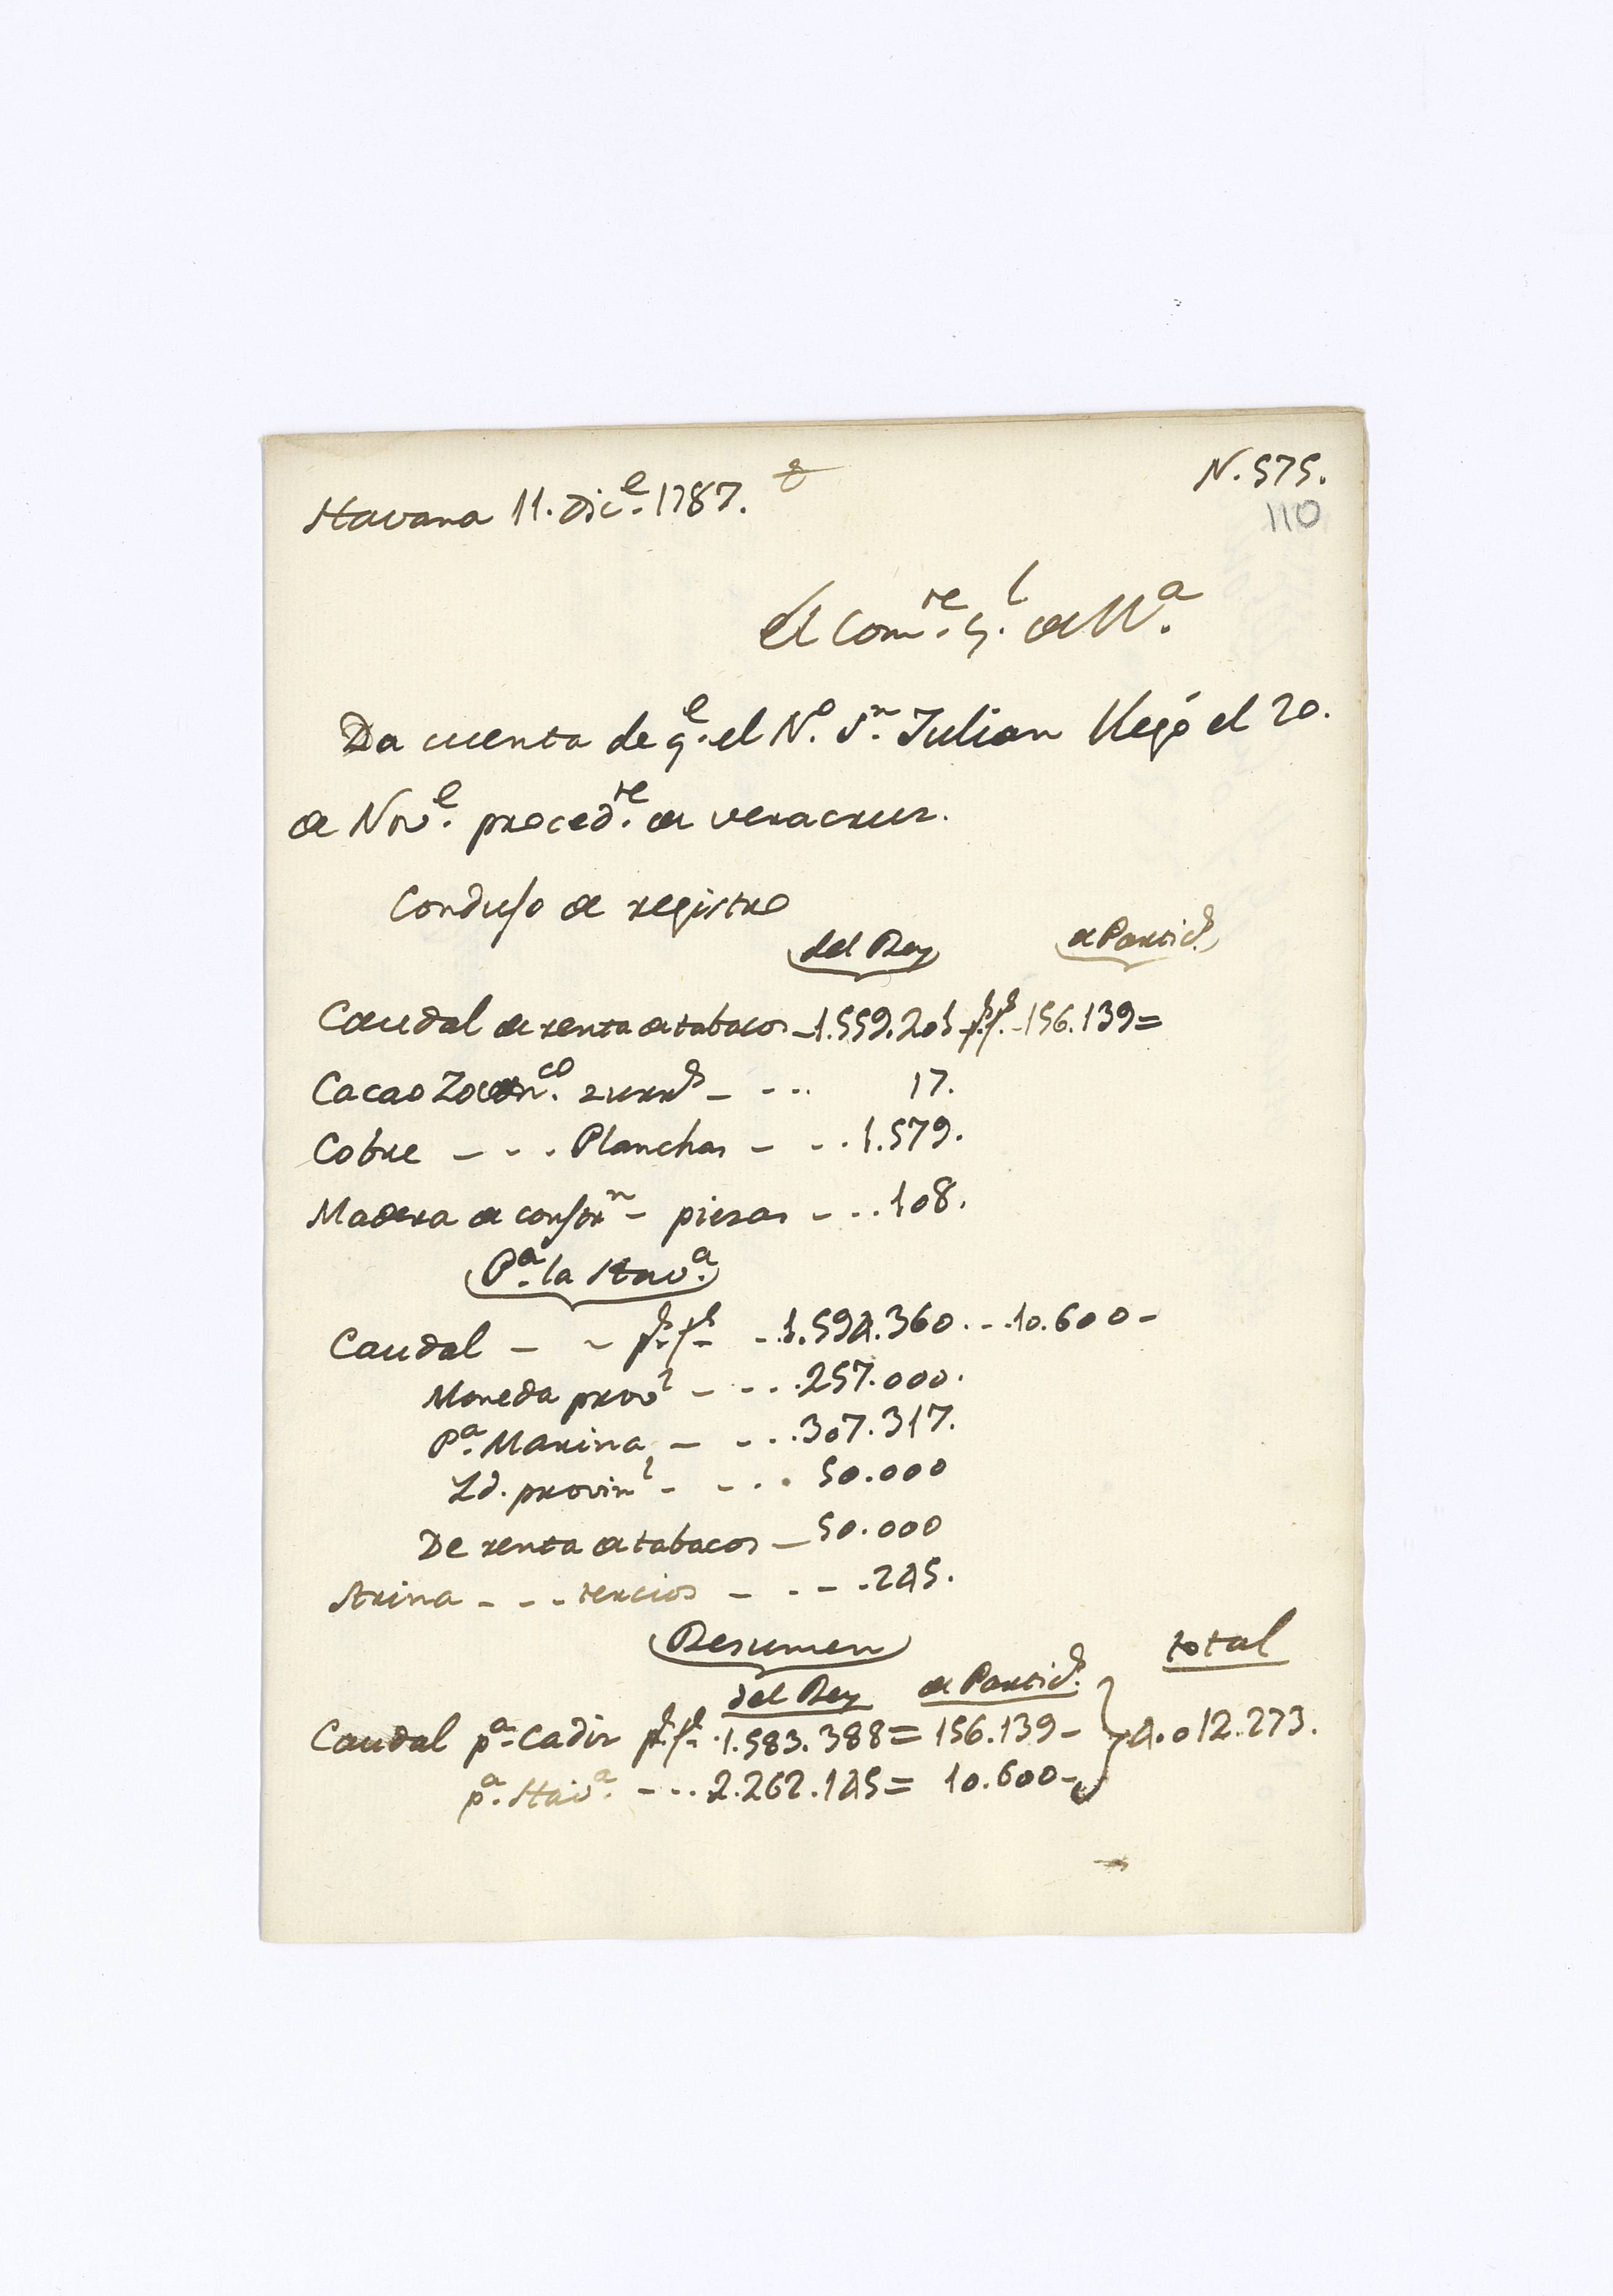 N. 575.
110
Havana 11. Dic.e 1787.
el Com.te G.l de M.a
Da cuenta de q.e el N.o S.n Julian llegó el 20.
de Nov.e proced.te de veracruz.
Condujo de registro
del Rey de Partic.s
Caudal de renta de tabacos - 1.559.201 p.s f.s - 156.139=
Cacao Zocon.co zurr.s - - .. 17.
Cobre - - . . Planchas - - . . 1.579.
Madera de confor.n - piezas - . . . 108.
P.a la Hav.a
Caudal - - p.s f.s - . 1.594.360. - . 10.600-
Moneda prov.l - - . . . 257.000.
P.a Marina - - . . . 307.317.
Yd. provin.l - - . . 50.000
De renta de tabacos - 50.000
Arina - . . - tercios - - . - . 245.
Resumen total
del Rey de Partic.s
Caudal p.a Cadiz p.s f.s . 1.583.388= 156.139- 4.012.273.
p.a Hav.a - - . . 2.262.145= 10.600-